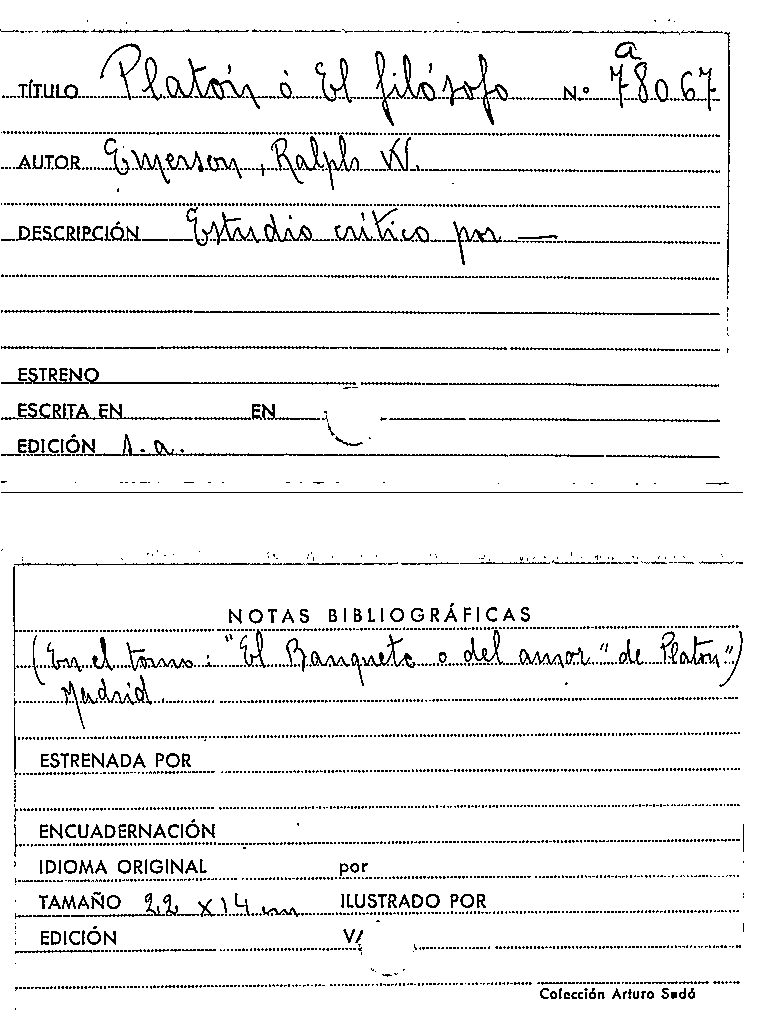 a
TÍTULO Platón ó El filósofo N.º 78067
AUTOR Emerson, Ralph W.
DESCRIPCIÓN Estudio crítico por —
ESTRENO
ESCRITA EN EN
EDICIÓN s.a.
NOTAS BIBLIOGRÁFICAS
(En el tomo: "El Banquete o del amor" de Platon")
Madrid
ESTRENADA POR
ENCUADERNACIÓN
IDIOMA ORIGINAL por
TAMAÑO 22 x 14 cm ILUSTRADO POR
EDICIÓN V/
Colección Arturo Sedó